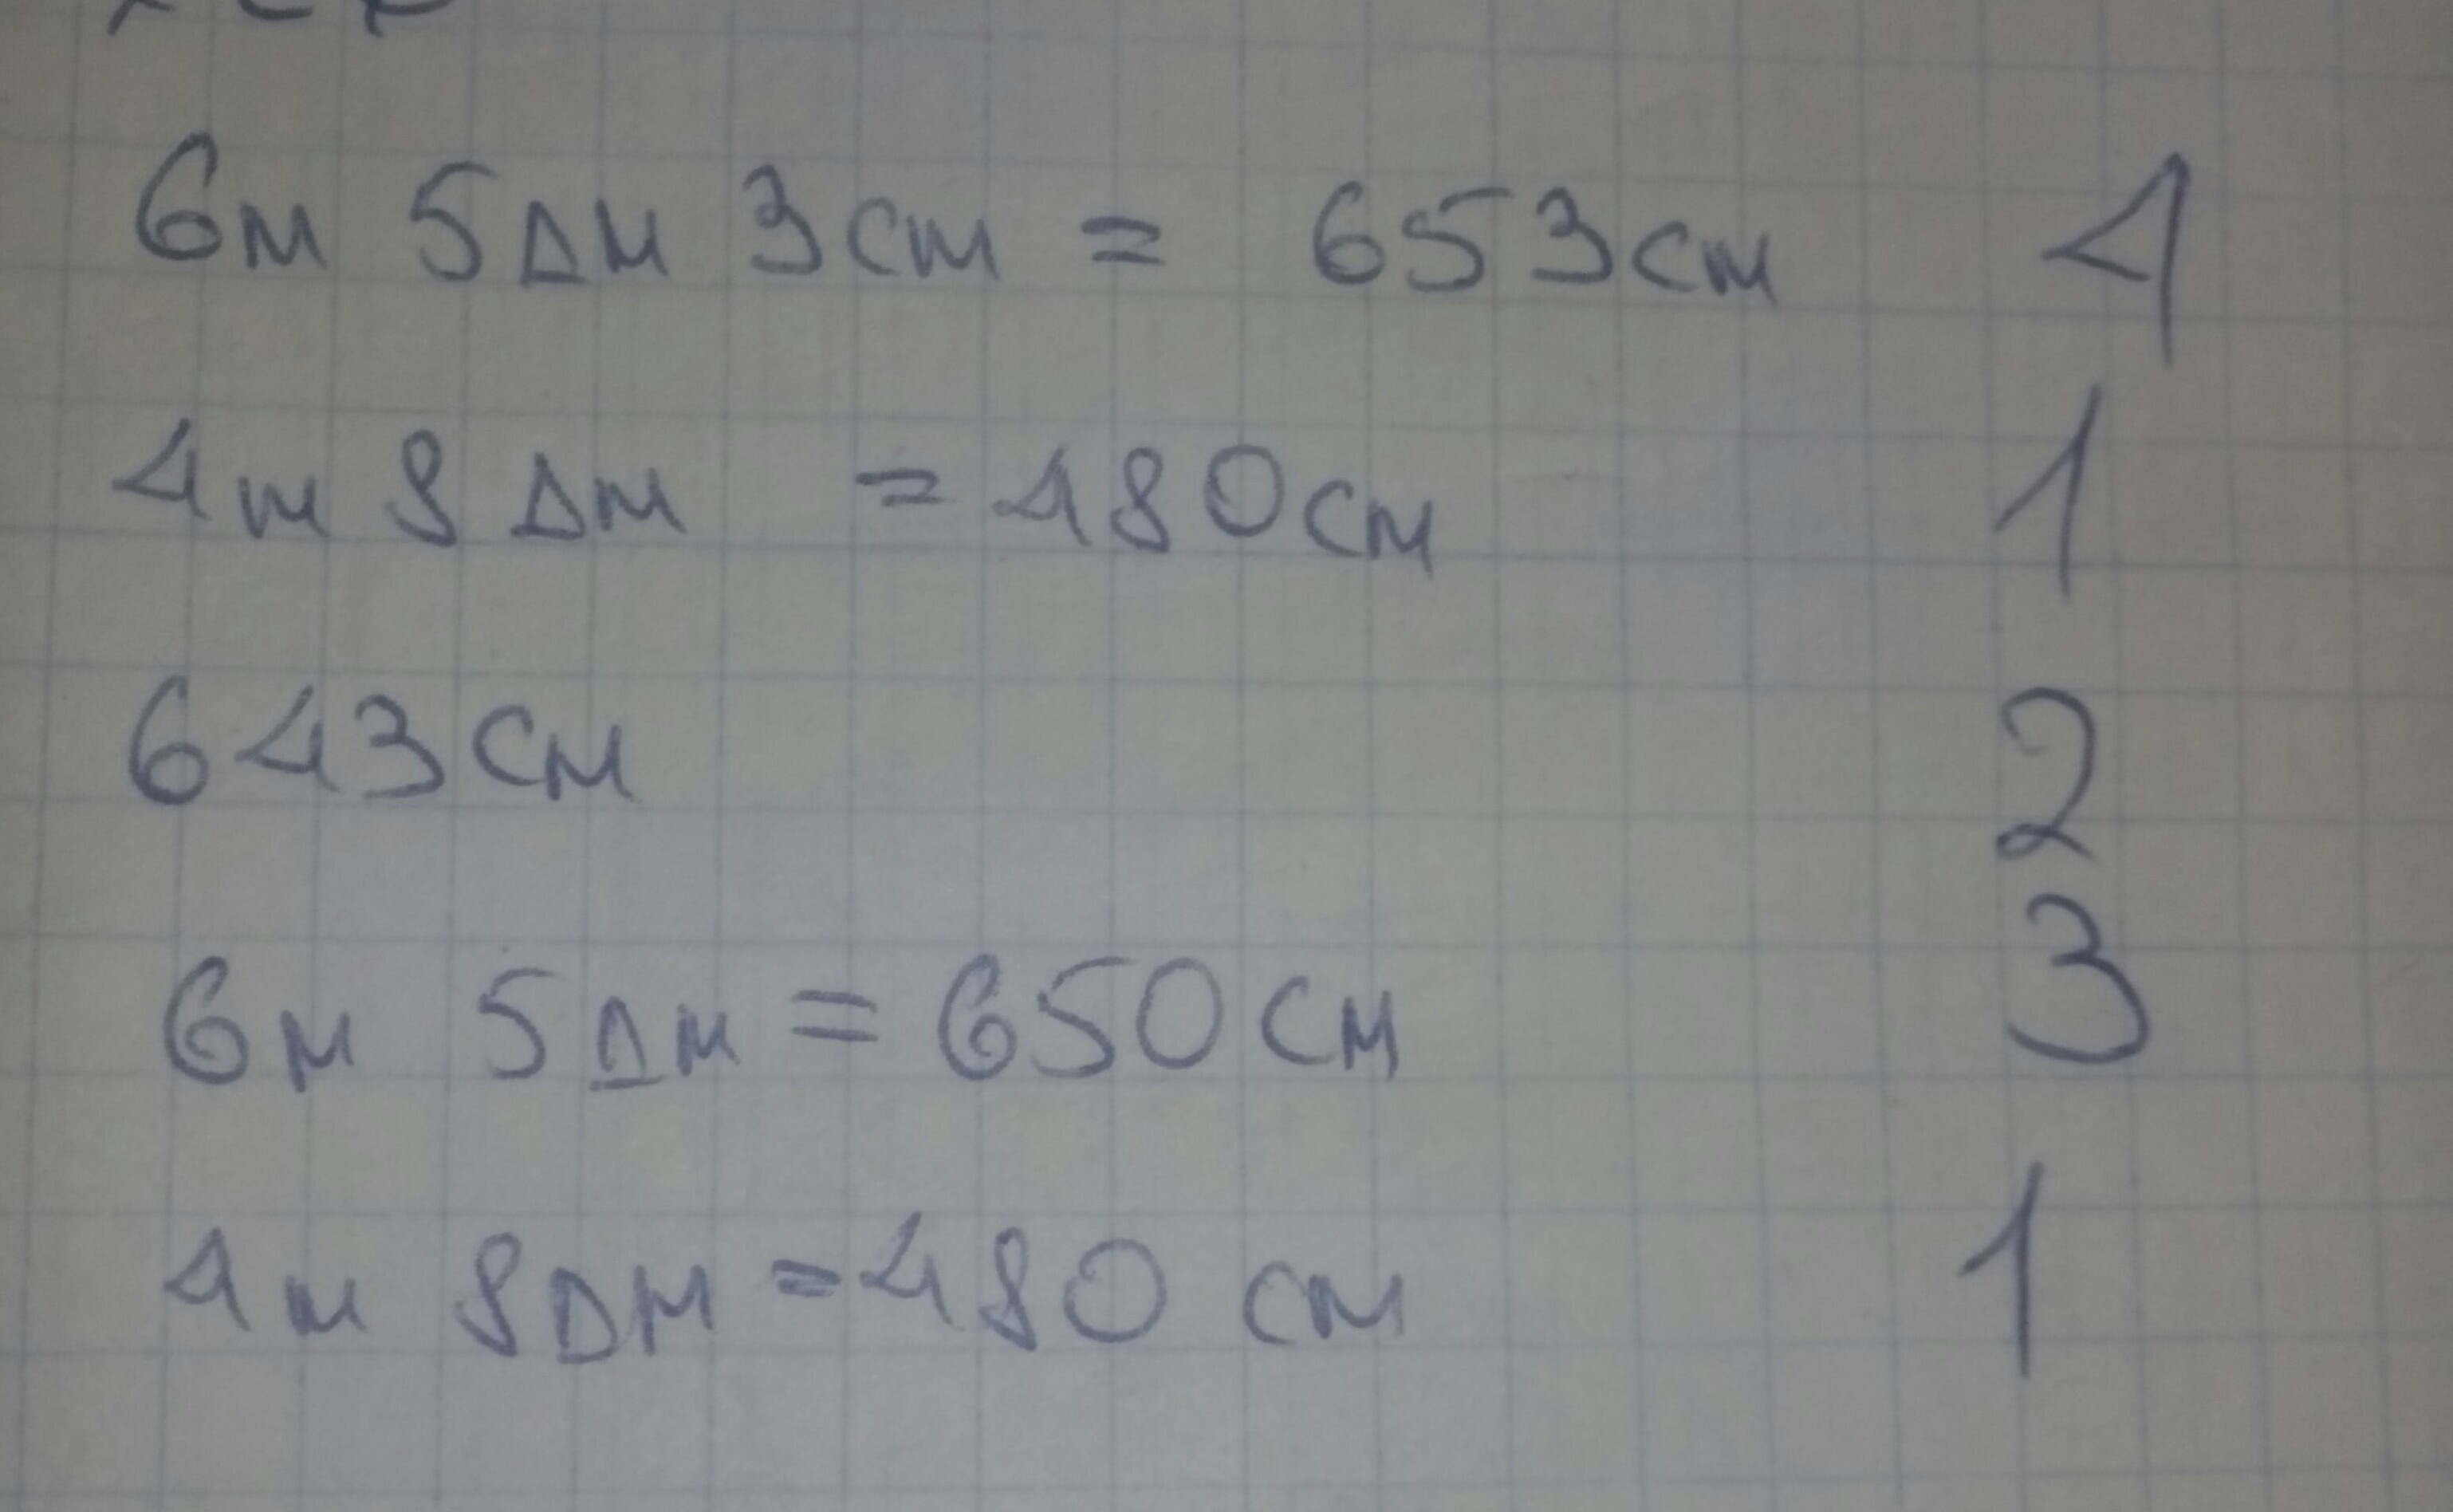 6м 5дм 3см = 653см 4
4м 8дм = 480см 1
643см 2
6м 5дм = 650см 3
4м 8дм = 480 см 1